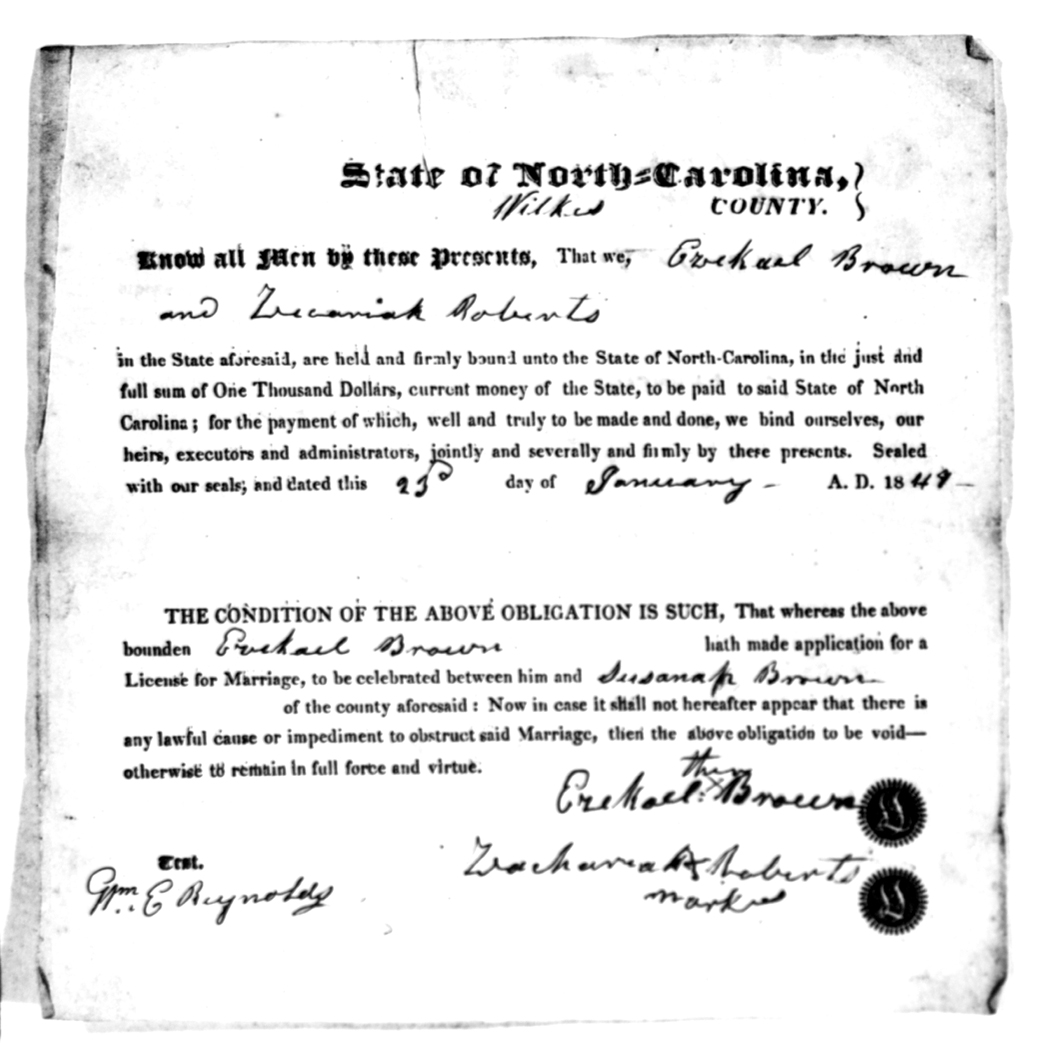 State of North-Carolina,
Wilkes COUNTY.
Know all Men by these Presents, That we, Ezekael Brown
and Zecariah Roberts
in the State aforesaid, are held and firmly bound unto the State of North-Carolina, in the just and
full sum of One Thousand Dollars, current money of the State, to be paid to said State of North
Carolina; for the payment of which, well and truly to be made and done, we bind ourselves, our
heirs, executors and administrators, jointly and severally and firmly by these presents. Sealed
with our seals, and dated this 23d day of January - A. D. 1849 -
THE CONDITION OF THE ABOVE OBLIGATION IS SUCH, That whereas the above
bounden Ezekael Brown hath made application for a
License for Marriage, to be celebrated between him and Susanah Brown
of the county aforesaid: Now in case it shall not hereafter appear that there is
any lawful cause or impediment to obstruct said Marriage, then the above obligation to be void—
otherwise to remain in full force and virtue.
their
Ezekael X Brown
Test.
Zachariah X Roberts
Wm. E Reynolds
marks